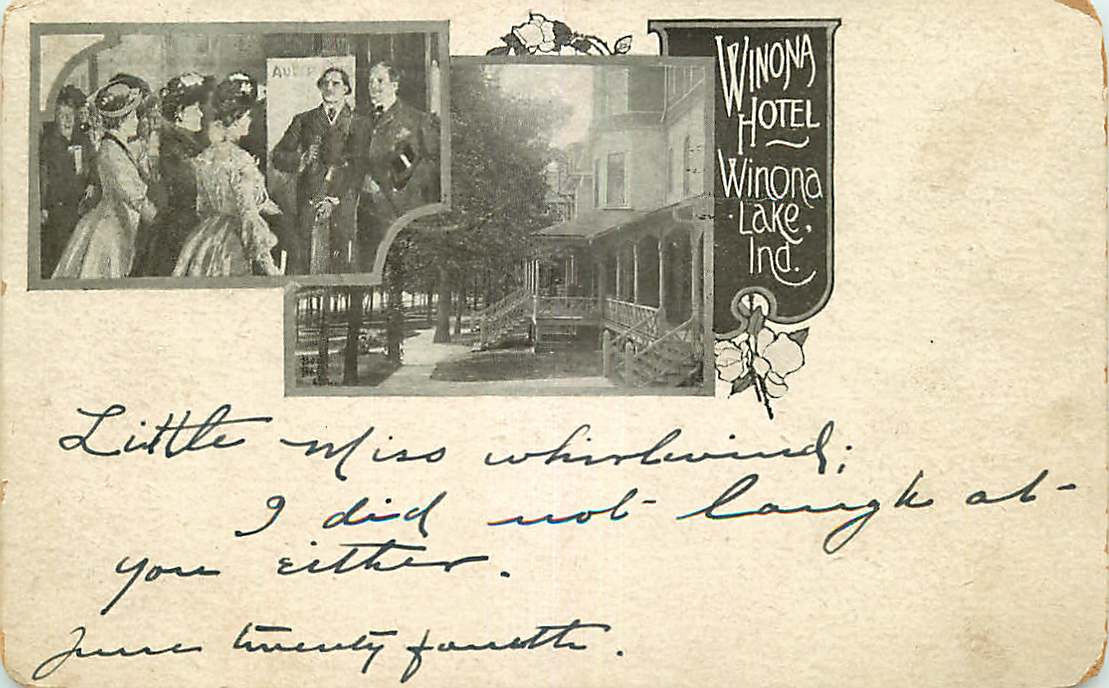 WINONA
HOTEL
WINONA
LAKE,
IND.
Little Miss whirlwind;
I did not laugh at
you either.
June twenty fourth.